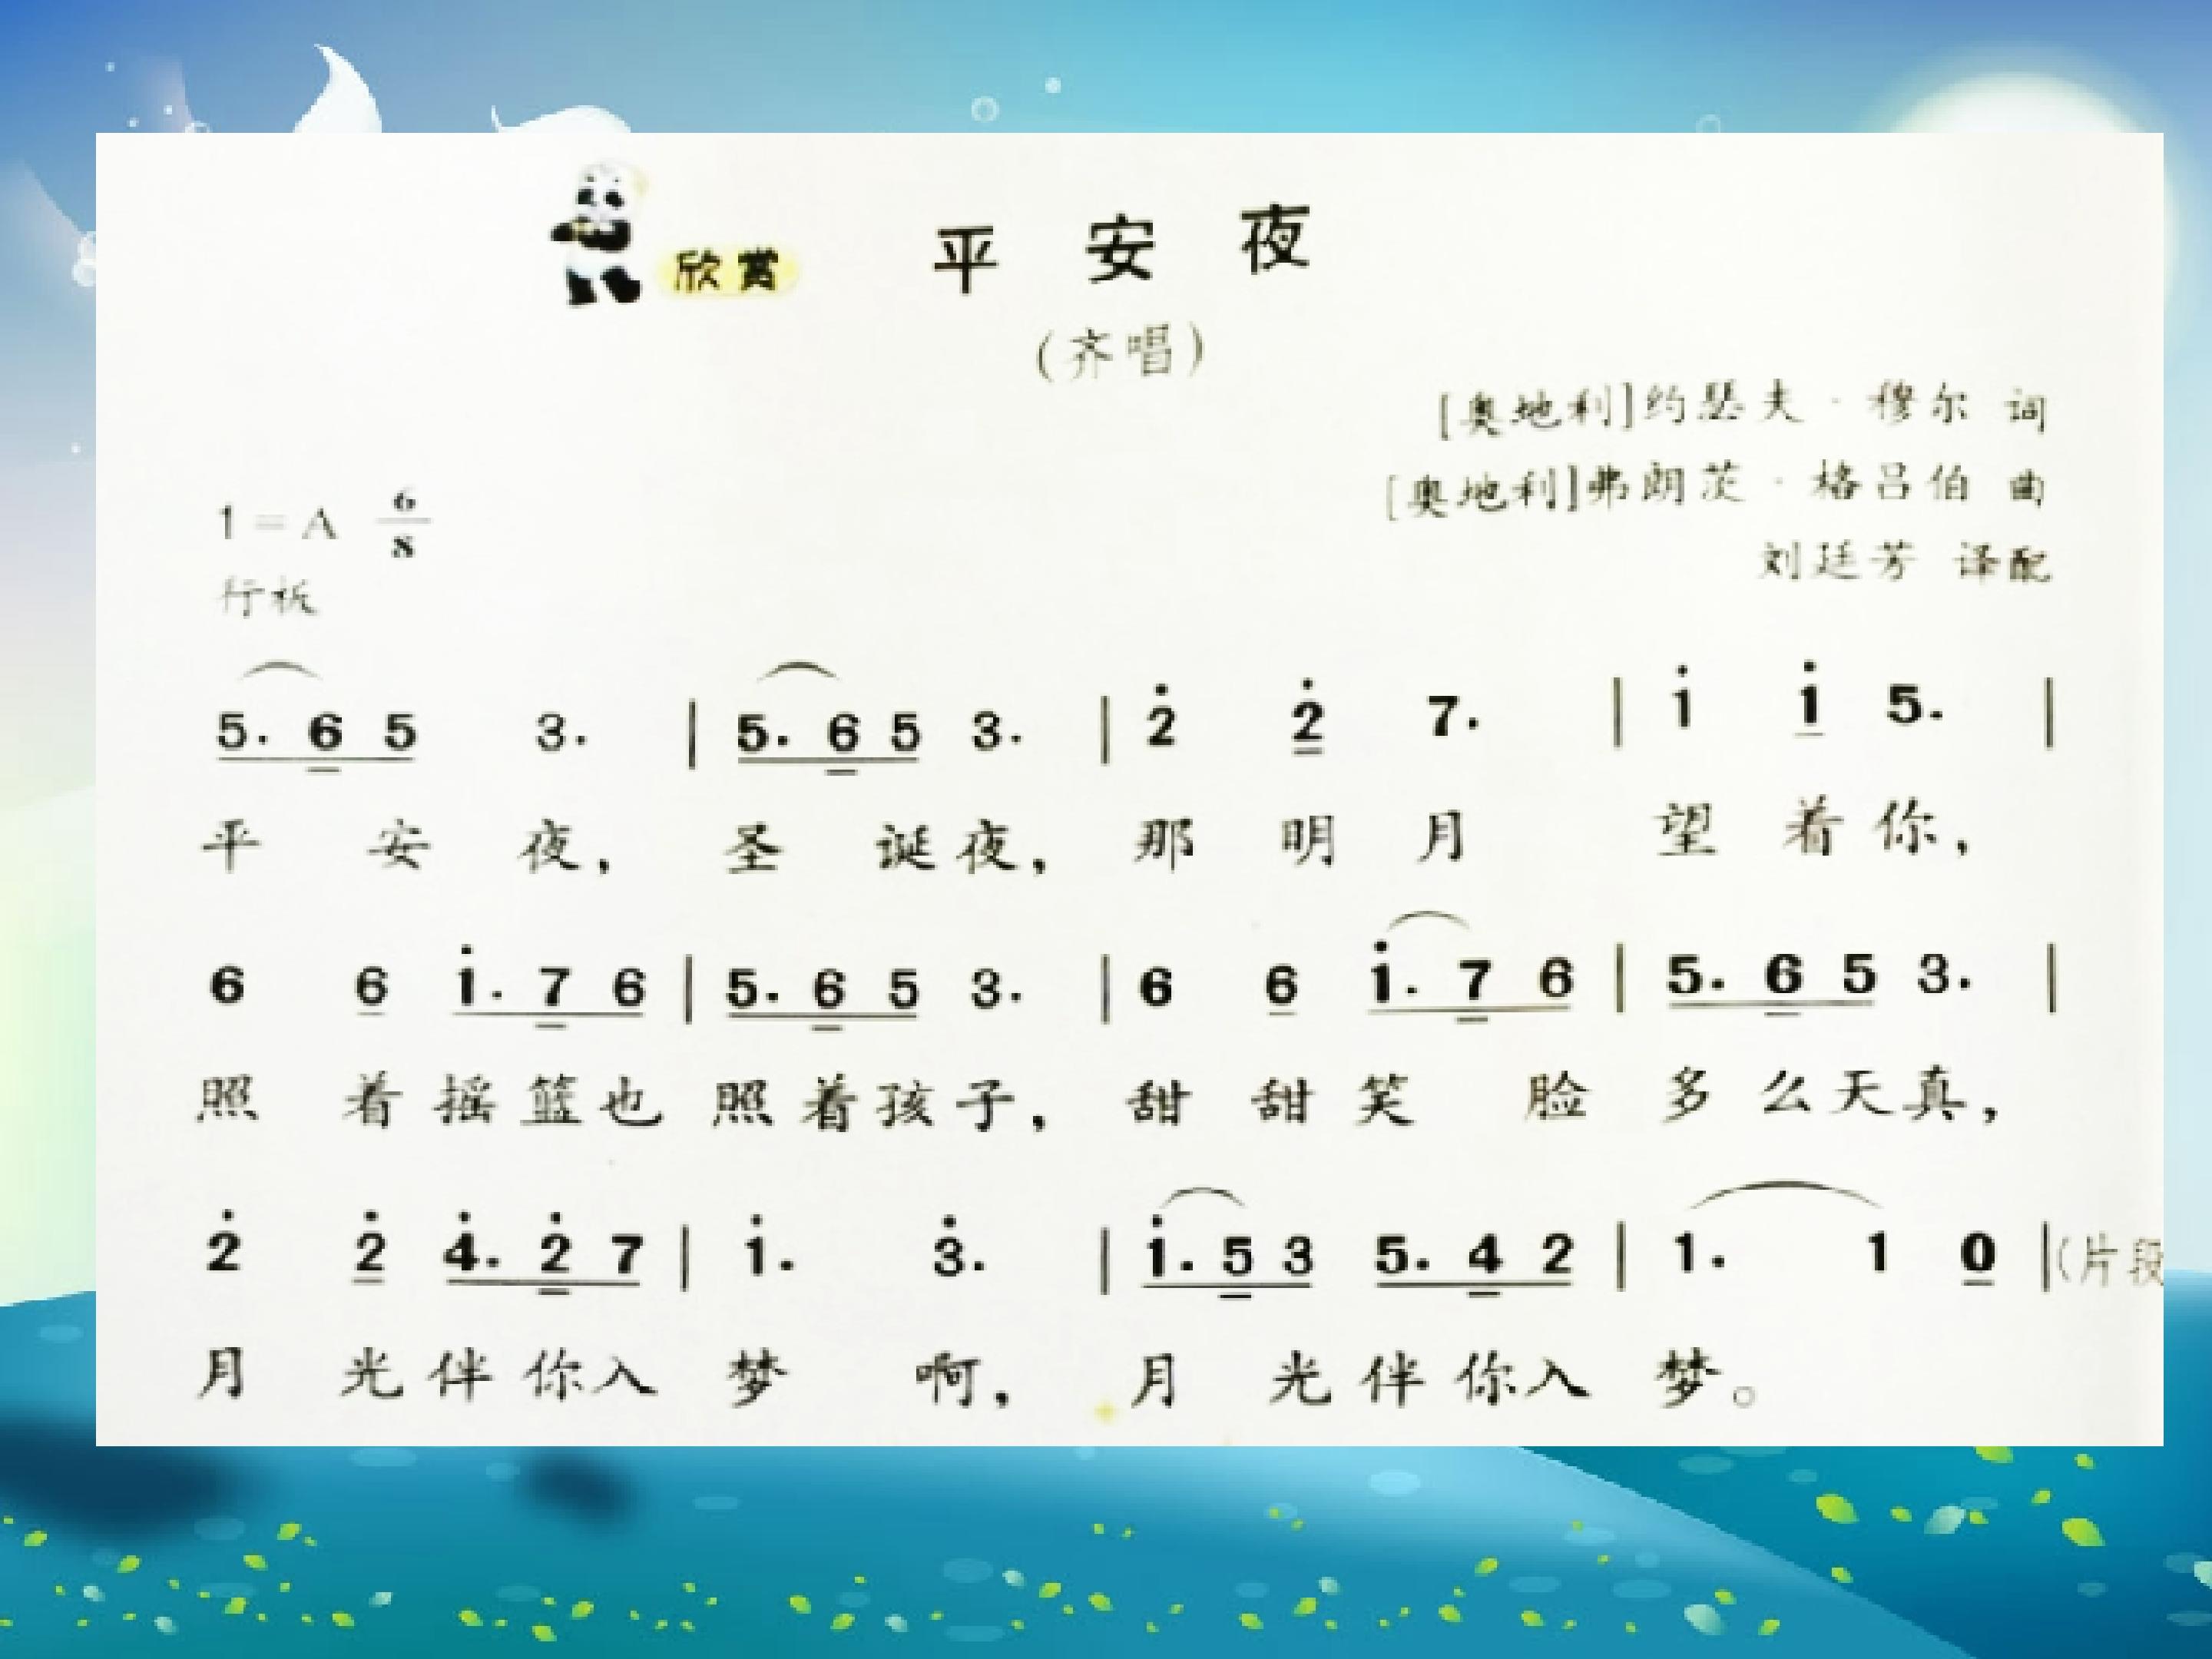 欣赏 平安夜
（齐唱）
[奥地利]约瑟夫·穆尔 词
[奥地利]弗朗茨·格吕伯 曲
刘廷芳 译配
1=A 6/8
行板
5. 6 5 3. | 5. 6 5 3. | 2̇ 2̇ 7. | 1̇ 1̇ 5. |
平 安 夜， 圣 诞 夜， 那 明 月 望 着 你，
6 6 1̇. 7 6 | 5. 6 5 3. | 6 6 1̇. 7 6 | 5. 6 5 3. |
照 着 摇 篮 也 照 着 孩 子， 甜 甜 笑 脸 多 么 天 真，
2̇ 2̇ 4̇. 2̇ 7 | 1̇. 3̇. | 1̇. 5 3 5. 4 2 | 1. 1 0 |（片段
月 光 伴 你 入 梦 啊， 月 光 伴 你 入 梦。